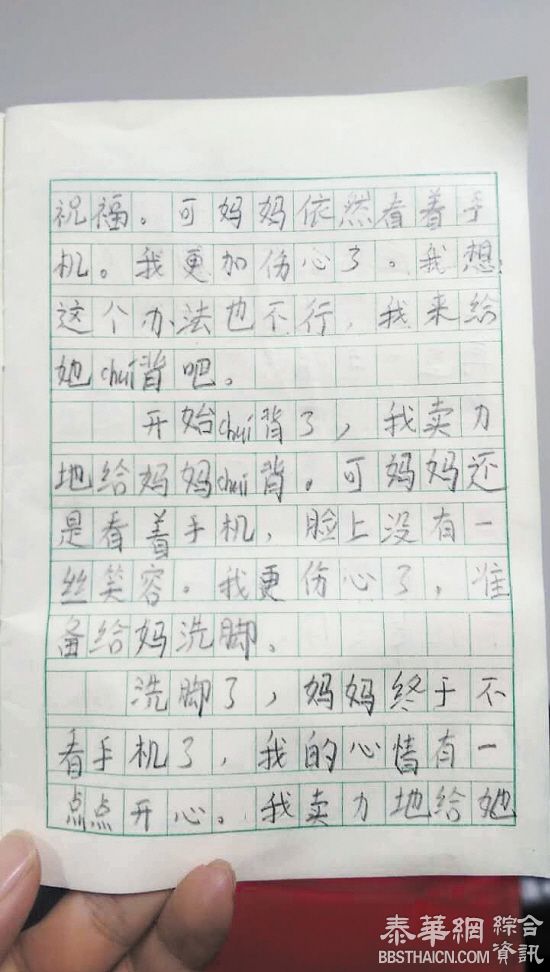 祝福。可妈妈依然看着手
机。我更加伤心了。我想:
这个办法也不行,我来给
她chuí背吧。
开始chuí背了,我卖力
地给妈妈chuí背。可妈妈还
是看着手机,脸上没有一
丝笑容。我更伤心了,准
备给妈洗脚。
洗脚了,妈妈终于不
看手机了,我的心情有一
点点开心。我卖力地给她
泰華網 綜合資訊
BBSTHAICN.COM